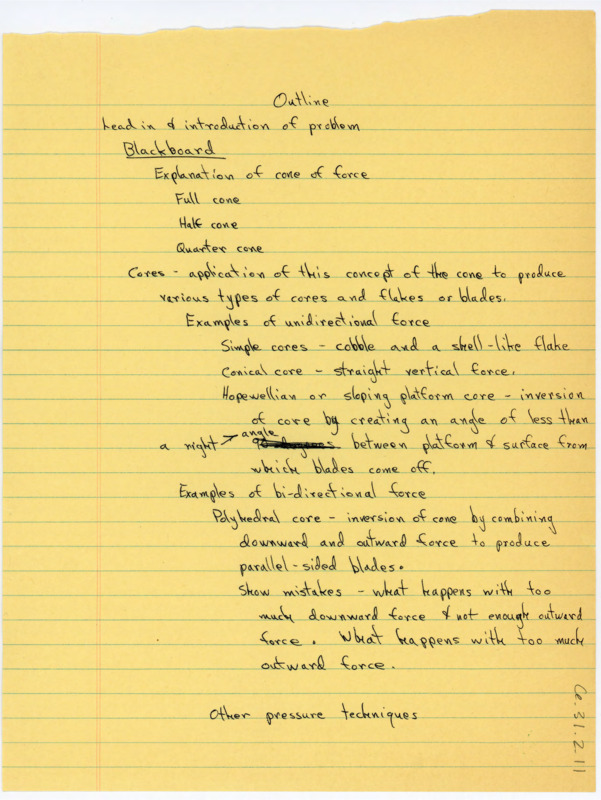 Outline
Lead in & introduction of problem
Blackboard
Explanation of cone of force
Full cone
Half cone
Quarter cone
Cores - application of this concept of the cone to produce
various types of cores and flakes or blades.
Examples of unidirectional force
Simple cores - cobble and a shell-like flake
Conical core - straight vertical force.
Hopewellian or sloping platform core - inversion
of core by creating an angle of less than
a right > angle 90 degrees between platform & surface from
which blades come off.
Examples of bi-directional force
Polyhedral core - inversion of cone by combining
downward and outward force to produce
parallel-sided blades.
Show mistakes - what happens with too
much downward force & not enough outward
force. What happens with too much
outward force.
Other pressure techniques
Ce.31.2.11